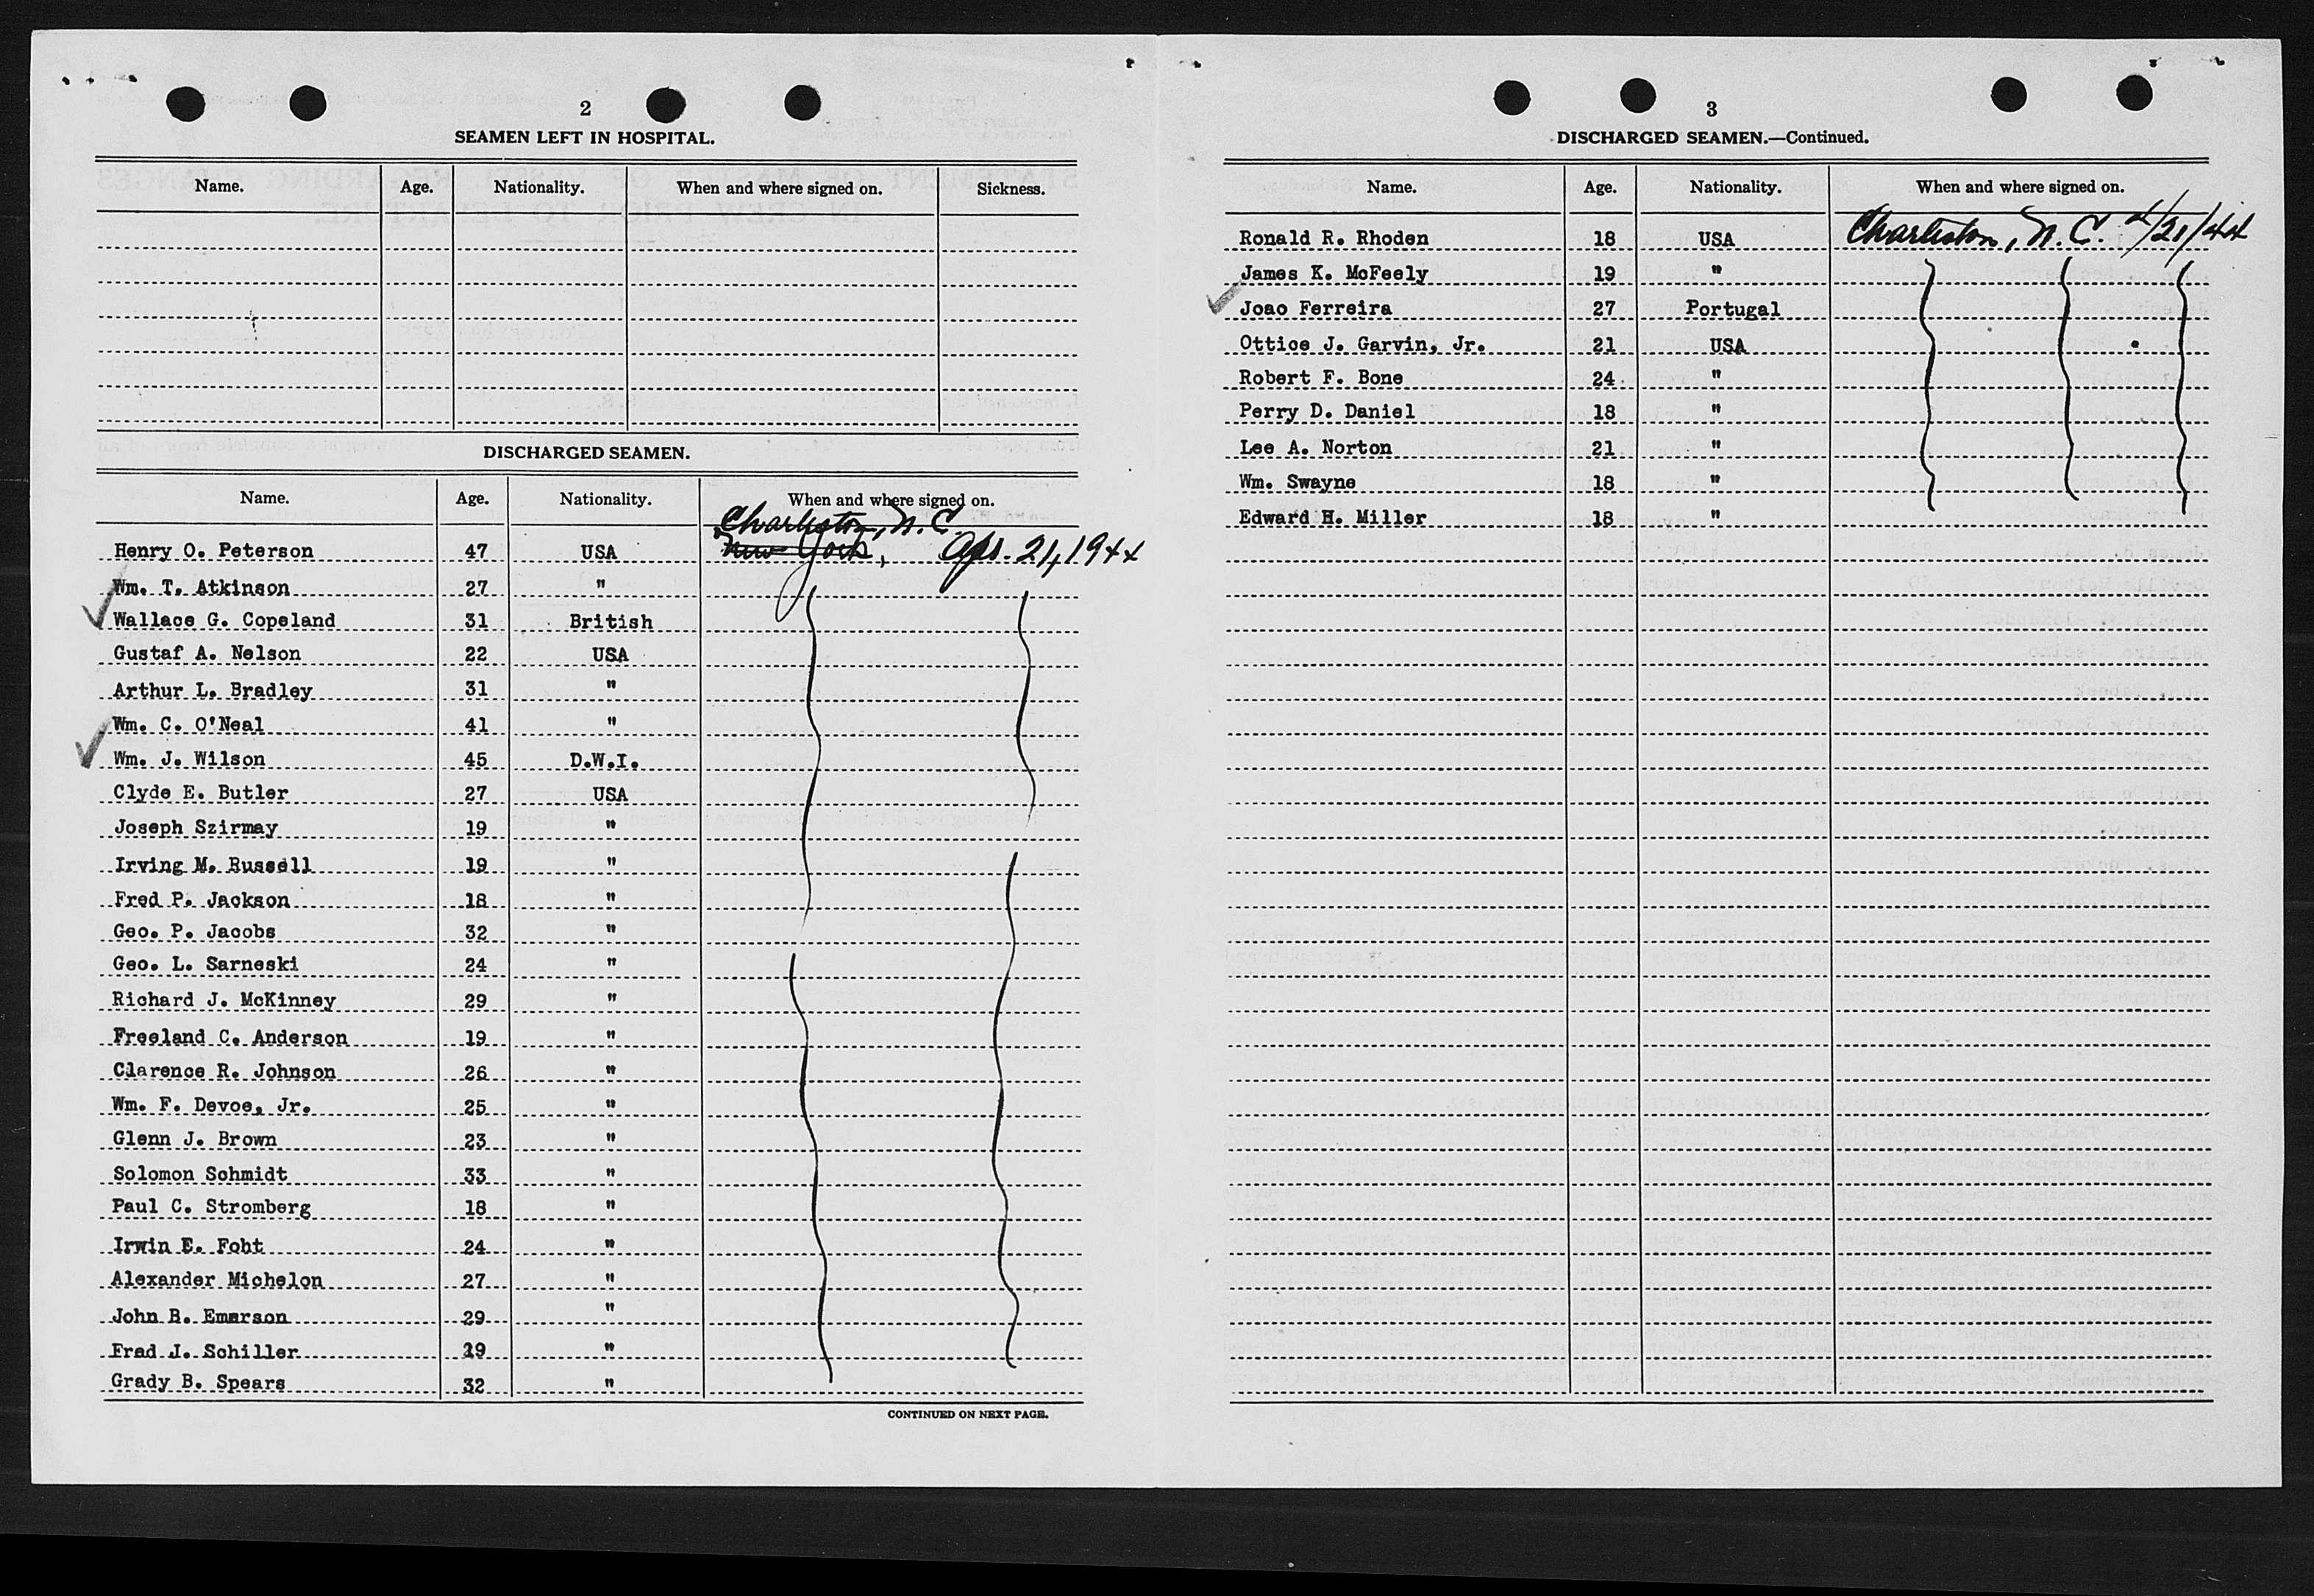 2
SEAMEN LEFT IN HOSPITAL.
Name. Age. Nationality. When and where signed on. Sickness.
DISCHARGED SEAMEN.
Name. Age. Nationality. When and where signed on.
Charleston, N.C.
Henry O. Peterson 47 USA New York, Apr. 21, 1944
Wm. T. Atkinson 27 "
Wallace G. Copeland 31 British
Gustaf A. Nelson 22 USA
Arthur L. Bradley 31 "
Wm. C. O'Neal 41 "
Wm. J. Wilson 45 D.W.I.
Clyde E. Butler 27 USA
Joseph Szirmay 19 "
Irving M. Russell 19 "
Fred P. Jackson 18 "
Geo. P. Jacobs 32 "
Geo. L. Sarneski 24 "
Richard J. McKinney 29 "
Freeland C. Anderson 19 "
Clarence R. Johnson 26 "
Wm. F. Devoe, Jr. 25 "
Glenn J. Brown 23 "
Solomon Schmidt 33 "
Paul C. Stromberg 18 "
Irwin E. Foht 24 "
Alexander Michelon 27 "
John B. Emerson 29 "
Fred J. Schiller "
Grady B. Spears 32 "
CONTINUED ON NEXT PAGE.
3
DISCHARGED SEAMEN.—Continued.
Name. Age. Nationality. When and where signed on.
Ronald R. Rhoden 18 USA Charleston, N.C. 4/21/44
James K. McFeely 19 "
Joao Ferreira 27 Portugal
Ottice J. Garvin, Jr. 21 USA
Robert F. Bone 24 "
Perry D. Daniel 18 "
Lee A. Norton 21 "
Wm. Swayne 18 "
Edward H. Miller 18 "